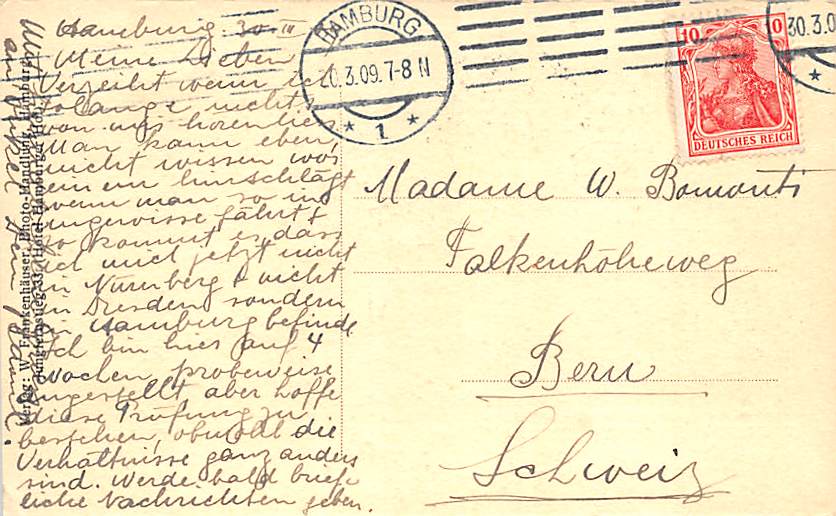 Hamburg 30 III
Meine Lieben
Verzeiht wenn ich
solange nicht
von mir hören liess
Man kann eben,
nicht wissen wo
einem hinschlägt
wenn man so ins
ungewisse fährt &
so kommt es, dass
ich mich jetzt nicht
in Nürnberg & nicht
in Dresden sondern
in Hamburg befinde
Ich bin hier auf 4
wochen probeweise
angestellt aber hoffe
diese Prüfung zu
bestehen, obwohl die
Verhältnisse ganz anders
sind. Werde bald brief-
liche Nachrichten geben.
Verlag: W. Frankenhäuser, Photo-Handlung, Hamburg
Jungfernstieg 33, Hotel Hamburger Hof
HAMBURG
20.3.09.7-8 N
* 1 *
30.3.0
*
10 10
DEUTSCHES REICH
Madame W. Bomonti
Falkenhöheweg
Bern
Schweiz